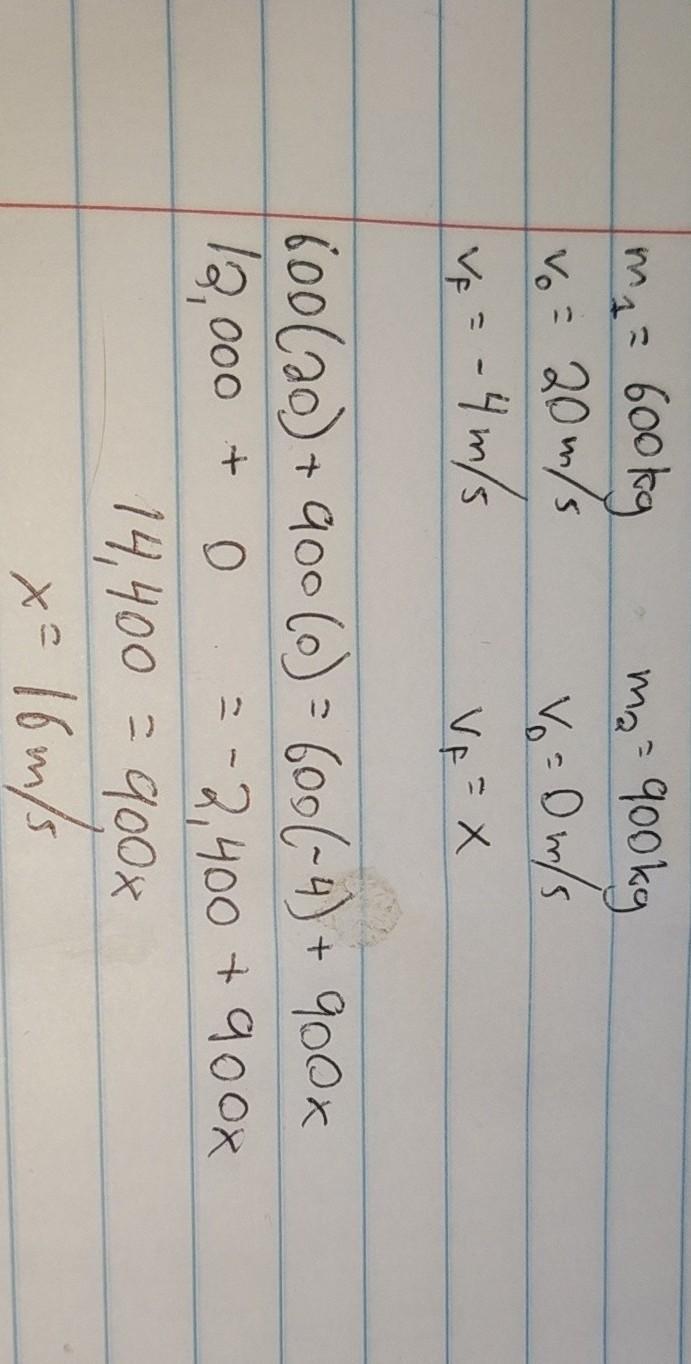 m₁ = 600kg m₂ = 900kg
v₀ = 20m/s v₀ = 0m/s
v_F = -4m/s v_F = x
600(20) + 900(0) = 600(-4) + 900x
12,000 + 0 = -2,400 + 900x
14,400 = 900x
x = 16m/s